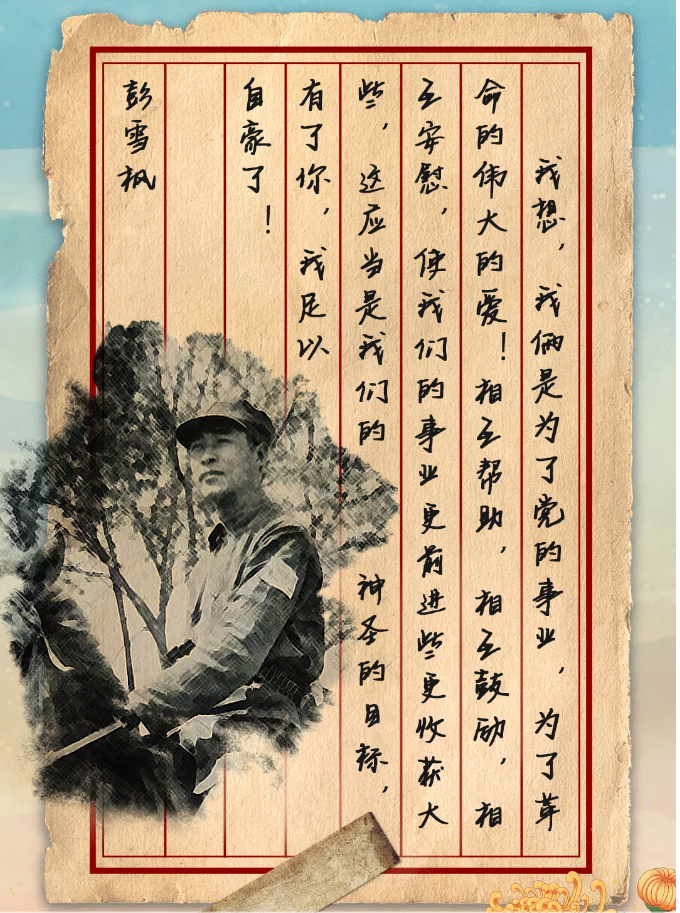 我想，我俩是为了党的事业，为了革
命的伟大的爱！相互帮助，相互鼓励，相
互安慰，使我们的事业更前进些更收获大
些，这应当是我们的神圣的目标，
有了你，我足以
自豪了！
彭雪枫